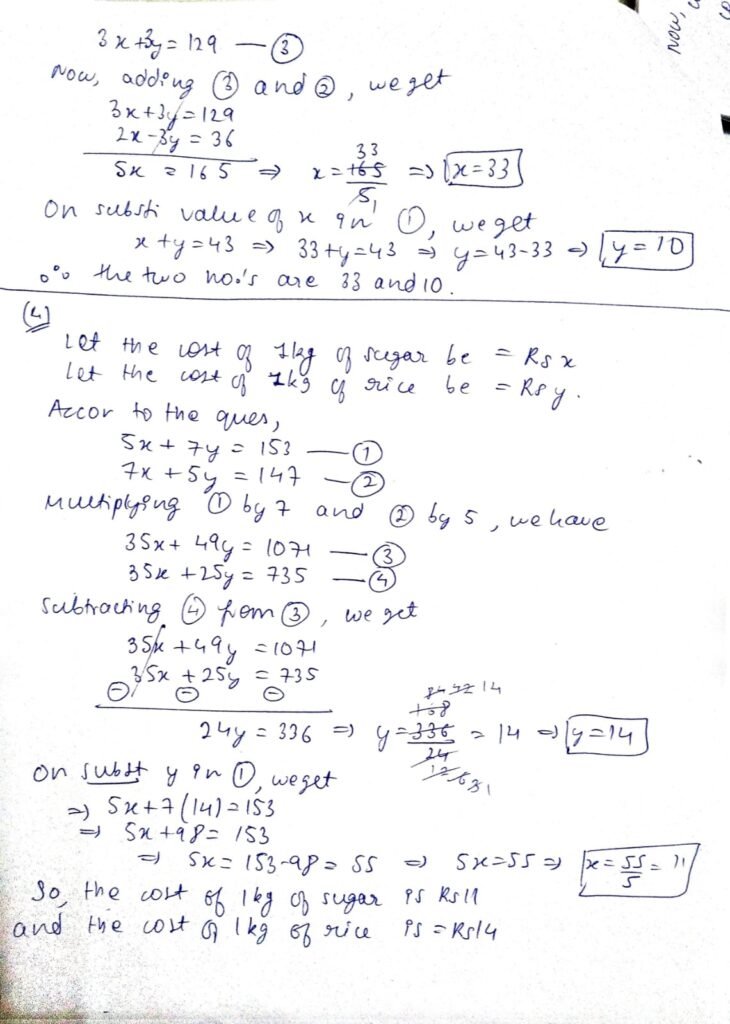 now,
3x+3y = 129 — ③
Now, adding ③ and ②, we get
3x+3y=129
2x-3y = 36
5x = 165 ⇒ x = 165/5 33 1 ⇒ x=33
On substi value of x in ①, we get
x+y=43 ⇒ 33+y=43 ⇒ y=43-33 ⇒ y=10
∴ the two no.'s are 33 and 10.
(4)
Let the cost of 1kg of sugar be = Rs x
Let the cost of 1kg of rice be = Rs y.
Accor to the ques,
5x + 7y = 153 — ①
7x + 5y = 147 — ②
Multiplying ① by 7 and ② by 5, we have
35x + 49y = 1071 — ③
35x + 25y = 735 — ④
Subtracting ④ from ③, we get
35x + 49y = 1071
35x + 25y = 735
⊖ ⊖ ⊖
84 42 14
168
24y = 336 ⇒ y = 336/24 = 14 ⇒ y=14
12 6 3 1
On subst y in ①, we get
⇒ 5x+7(14)=153
⇒ 5x+98= 153
⇒ 5x= 153-98 = 55 ⇒ 5x=55 ⇒ x = 55/5 = 11
So, the cost of 1kg of sugar is Rs11
and the cost of 1kg of rice is = Rs14